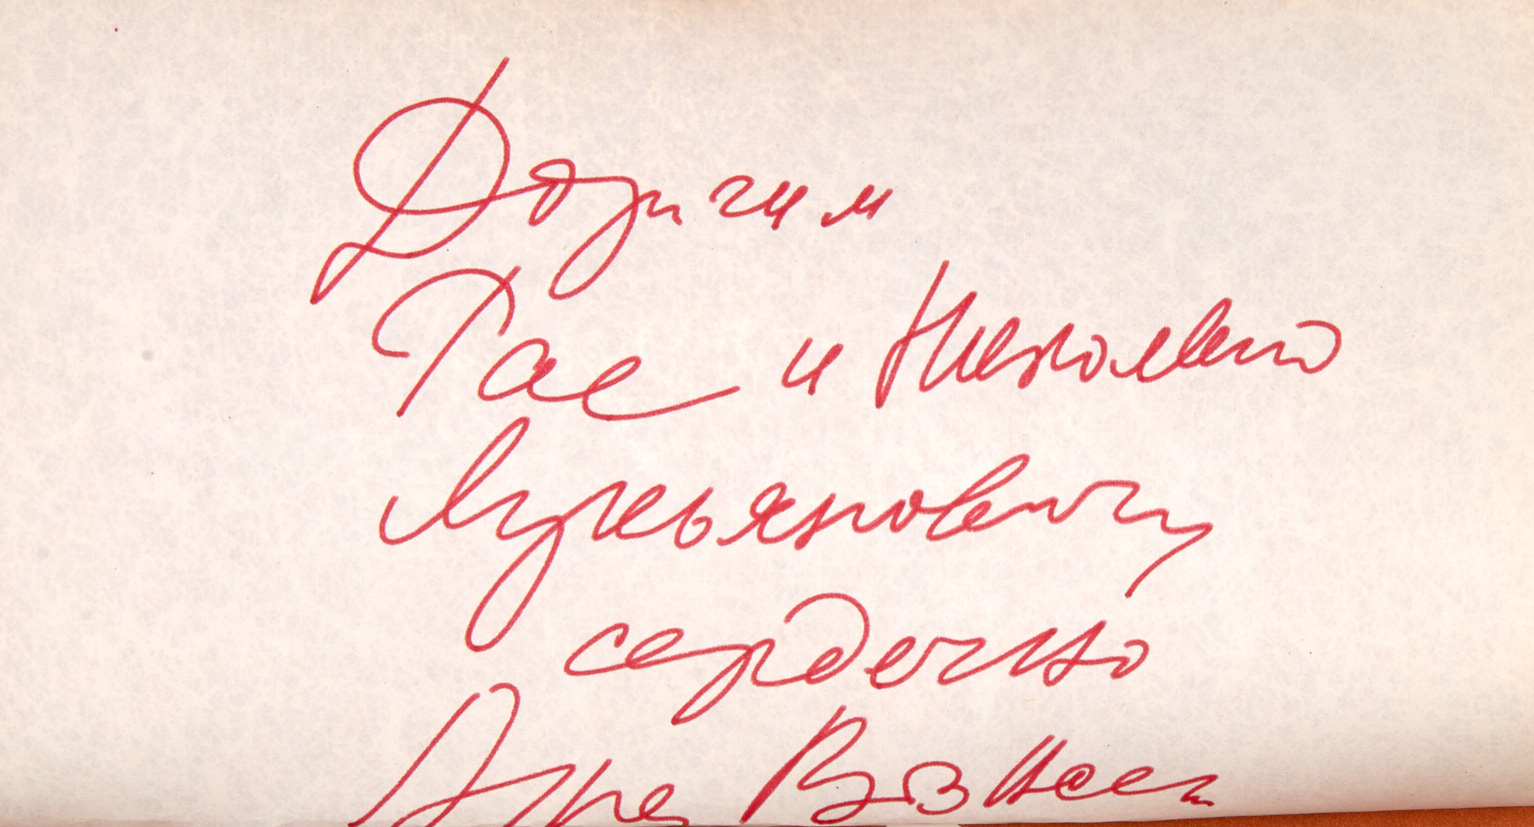 Дорогим
Тае и Николаю
Лукьяновичу
сердечно
Андре Вознесен